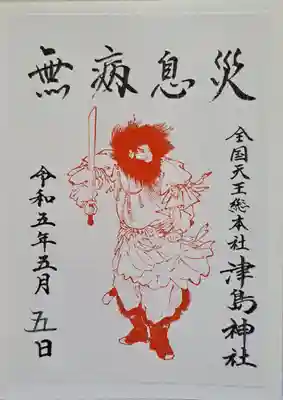 無病息災
全国天王総本社 津島神社
令和五年五月五日